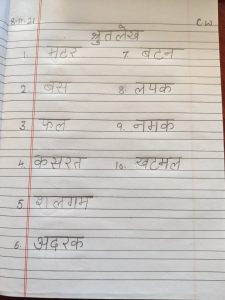 8-11-21 CW
श्रुतलेख
1. मटर 7. बटन
2. बस 8. लपक
3. फल 9. नमक
4. कसरत 10. खटमल
5. शलगम
6. अदरक